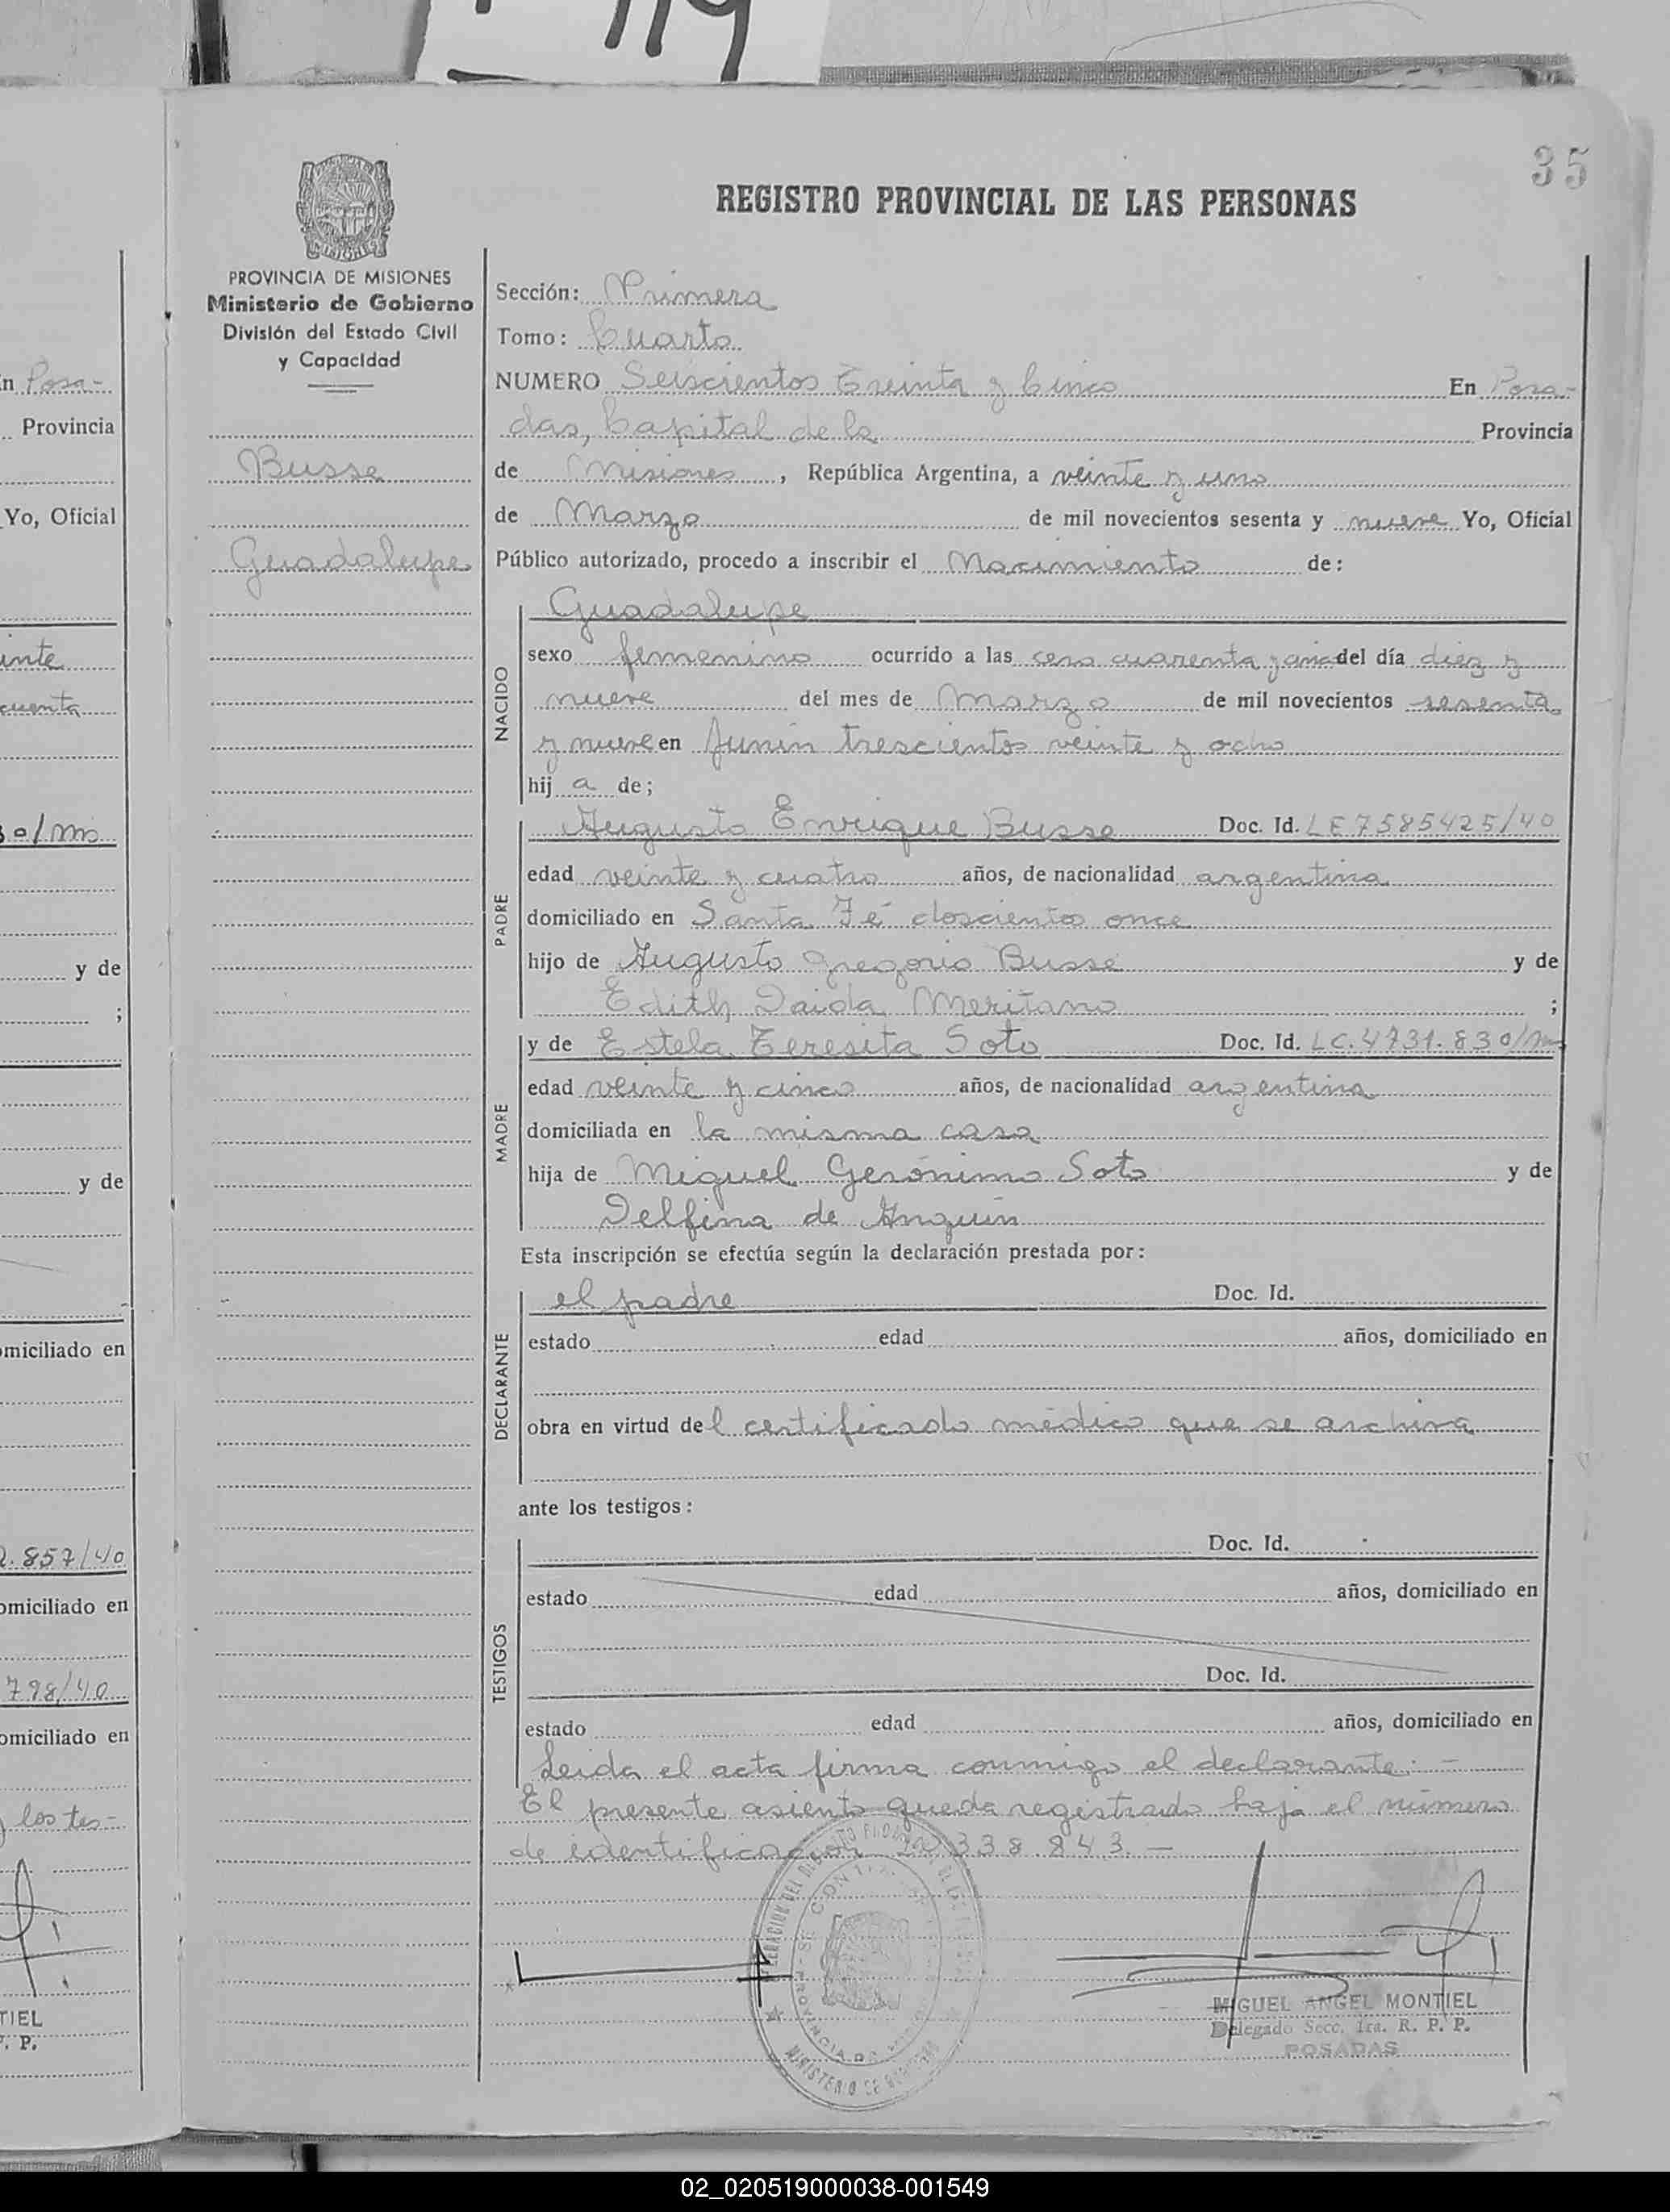 35
REGISTRO PROVINCIAL DE LAS PERSONAS
MISIONES
PROVINCIA DE MISIONES
Ministerio de Gobierno
División del Estado Civil
y Capacidad
Busse
Guadalupe
Sección: Primera
Tomo: Cuarto
NUMERO Seiscientos Treinta y Cinco En Posa-
das, Capital de la Provincia
de Misiones, República Argentina, a veinte y uno
de Marzo de mil novecientos sesenta y nueve Yo, Oficial
Público autorizado, procedo a inscribir el Nacimiento de:
NACIDO
Guadalupe
sexo femenino ocurrido a las cero cuarenta y del día diez y
nueve del mes de Marzo de mil novecientos sesenta
y nueve en Junín trescientos veinte y ocho
hij a de;
PADRE
Augusto Enrique Busse Doc. Id. LE 7585425/40
edad veinte y cuatro años, de nacionalidad argentina
domiciliado en Santa Fé doscientos once
hijo de Augusto Gregorio Busse y de
Edith Meritano ;
MADRE
y de Estela Teresita Soto Doc. Id. LC. 4731.830/
edad veinte y cinco años, de nacionalidad argentina
domiciliada en la misma casa
hija de Miguel Gerónimo Soto y de
Delfina de Anquin
Esta inscripción se efectúa según la declaración prestada por:
DECLARANTE
el padre Doc. Id.
estado edad años, domiciliado en
obra en virtud del certificado médico que se archiva
ante los testigos:
TESTIGOS
Doc. Id.
estado edad años, domiciliado en
Doc. Id.
estado edad años, domiciliado en
Leida el acta firma conmigo el declarante.-
El presente asiento queda registrado bajo el número
de identificación 338.843.-
MIGUEL ANGEL MONTIEL
Delegado Secc. 1ra. R. P. P.
POSADAS
n Posa-
Provincia
Yo, Oficial
inte
cuenta
o/mis
y de
;
y de
omiciliado en
.857/40
omiciliado en
798/40
omiciliado en
y los tes-
TIEL
P.
02_020519000038-001549